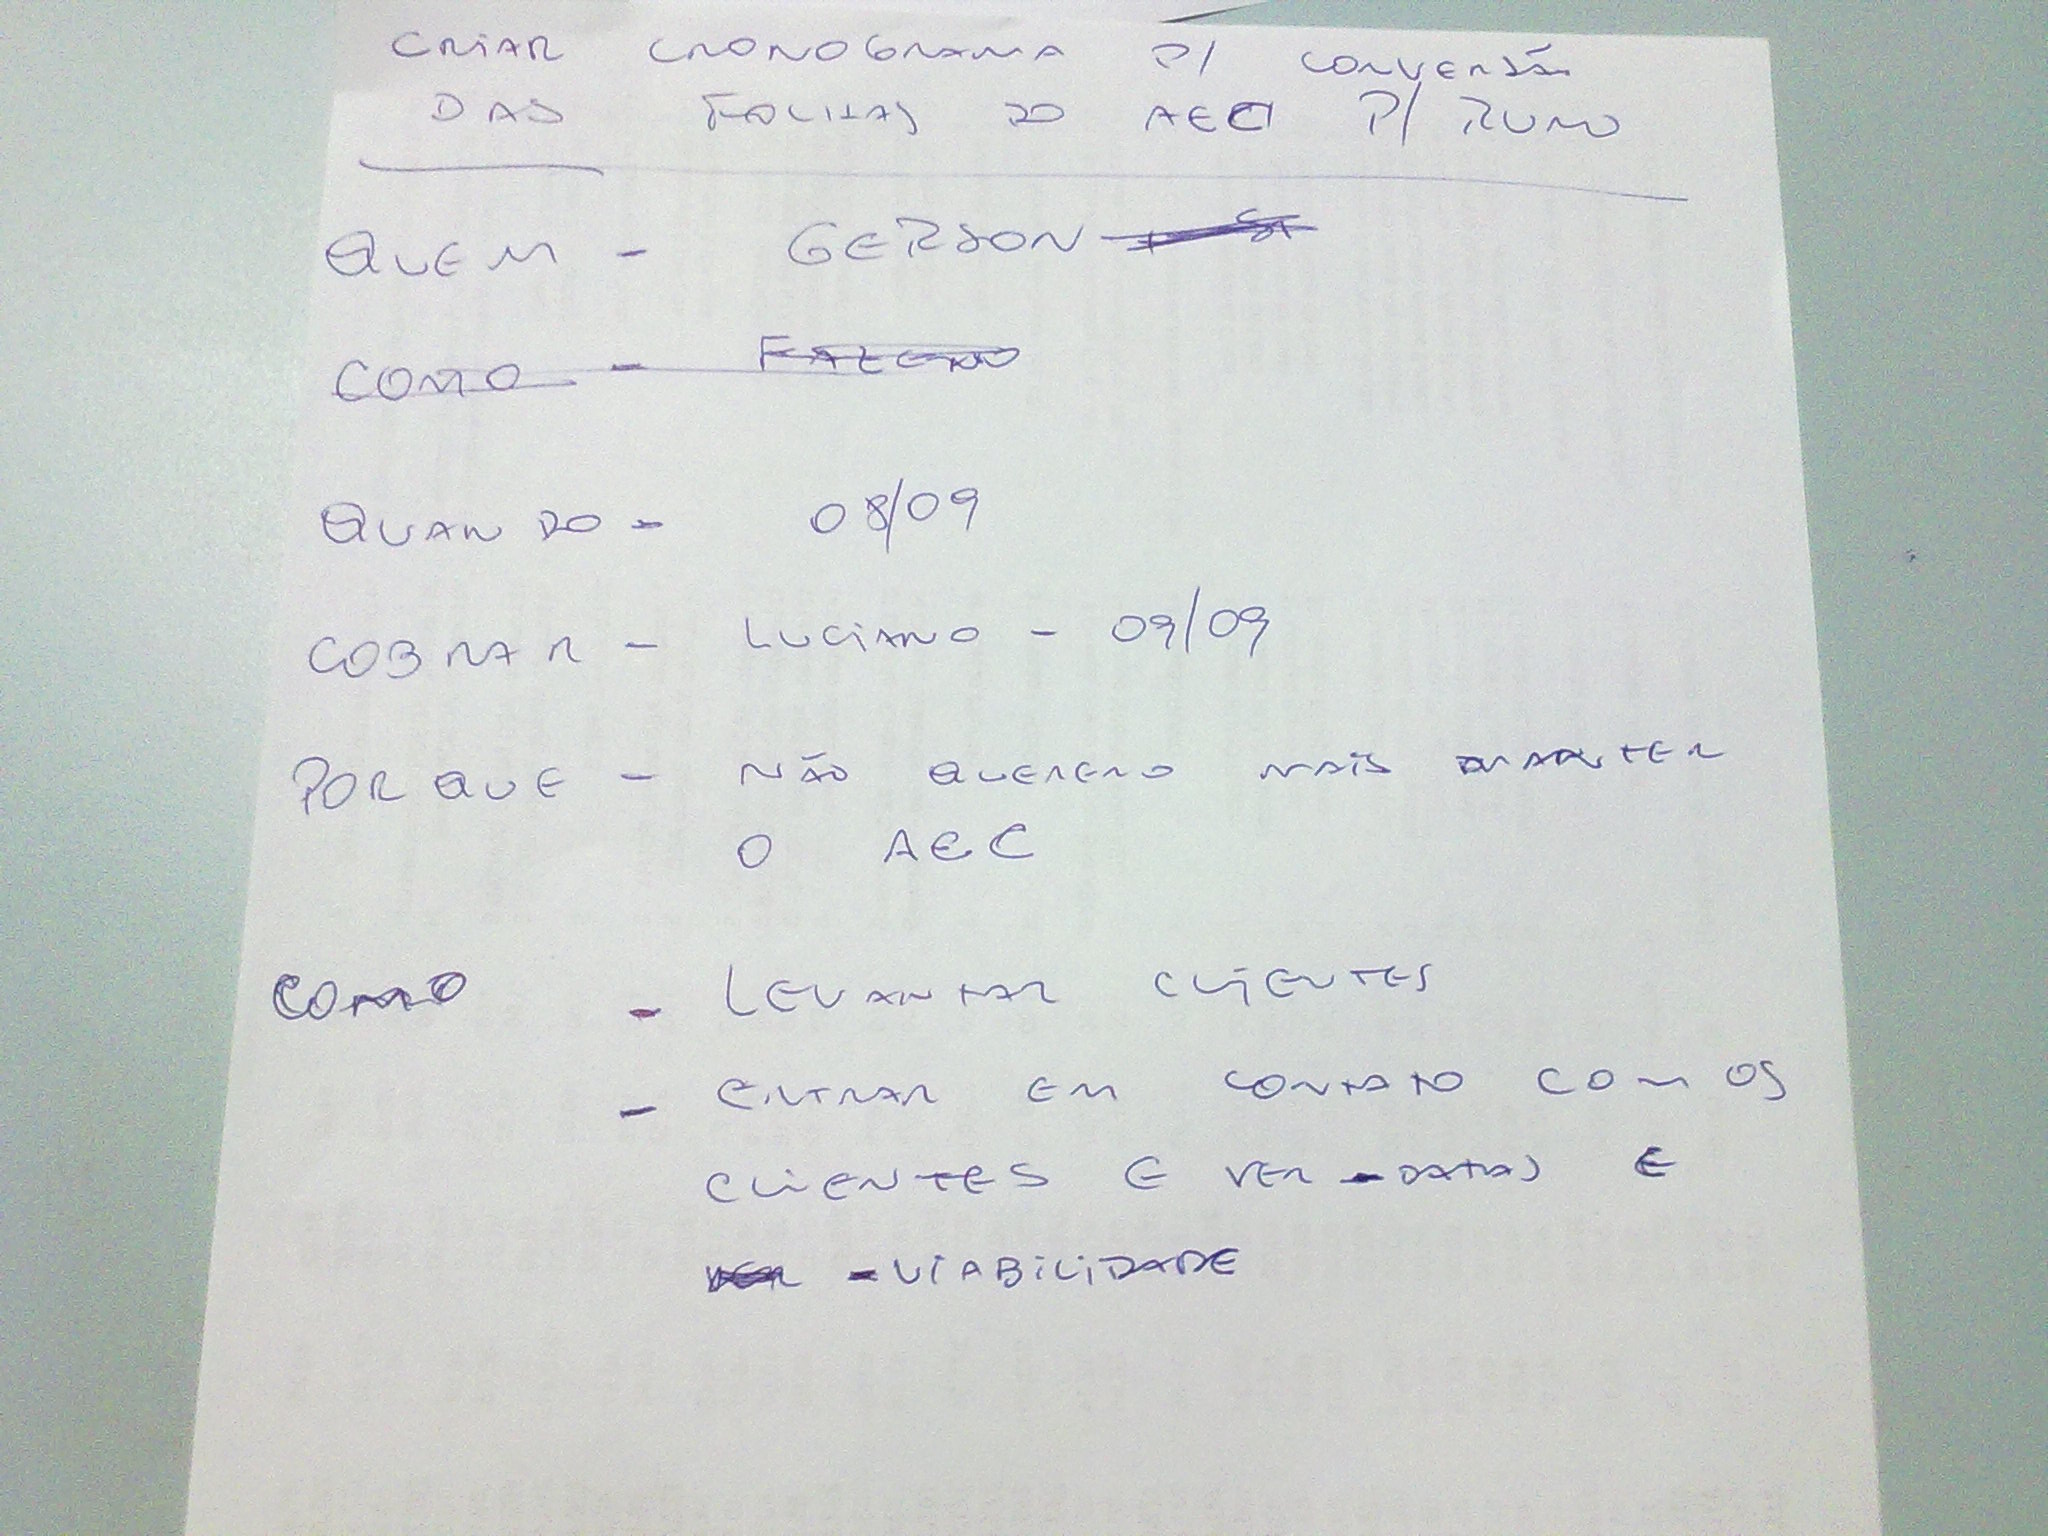 CRIAR CRONOGRAMA P/ CONVERSÃO
DAS FOLHAS DO AEC P/ RUMO
QUEM - GERSON
COMO - FAZENDO
QUANDO - 08/09
COBRAR - LUCIANO - 09/09
PORQUE - NÃO QUEREMO MAIS MANTER
O AEC
COMO - LEVANTAR CLIENTES
- ENTRAR EM CONTATO COM OS
CLIENTES E VER - DATAS E
VER - VIABILIDADE